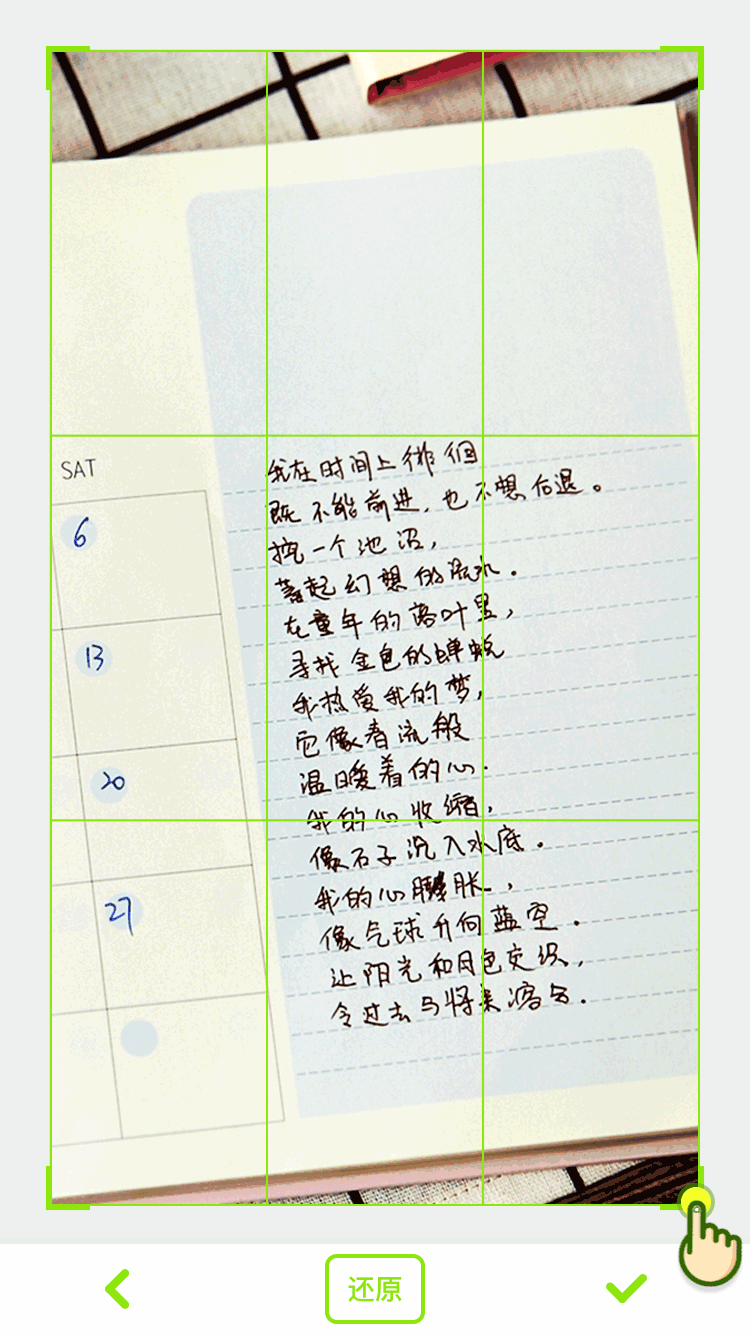 SAT
6
13
20
27
我在时间上徘徊
既不能前进,也不想后退。
挖一个池沼,
蓄起幻想的流水.
在童年的落叶里,
寻找金色的蝉蜕
我热爱我的梦,
它像春流般
温暖着的心.
我的心收缩,
像石子沉入水底.
我的心膨胀,
像气球升向蓝空.
让阳光和月色交织,
令过去与将来溶合.
还原